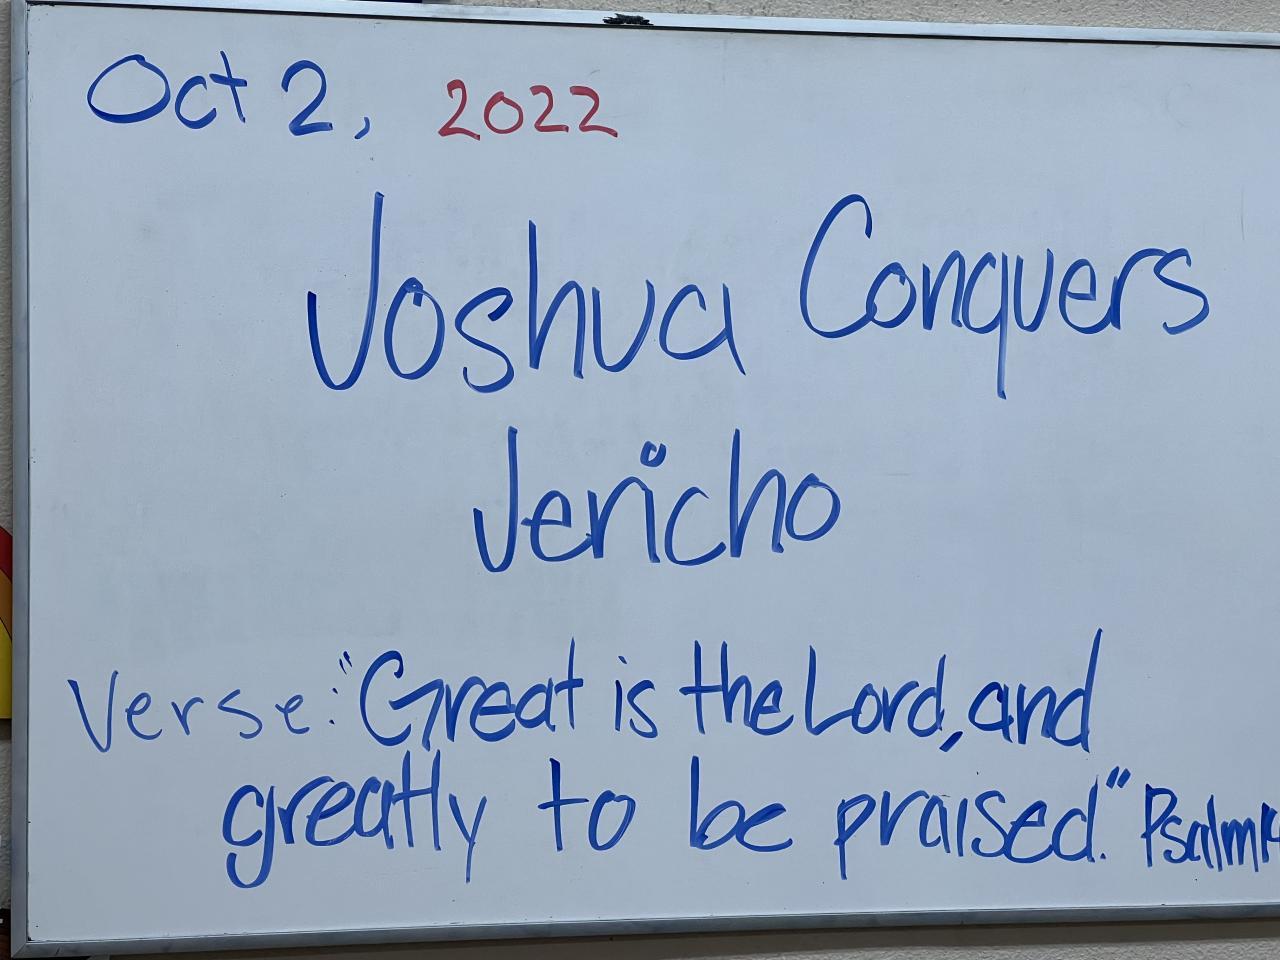 Oct 2, 2022
Joshua Conquers
Jericho
Verse: "Great is the Lord, and
greatly to be praised." Psalm